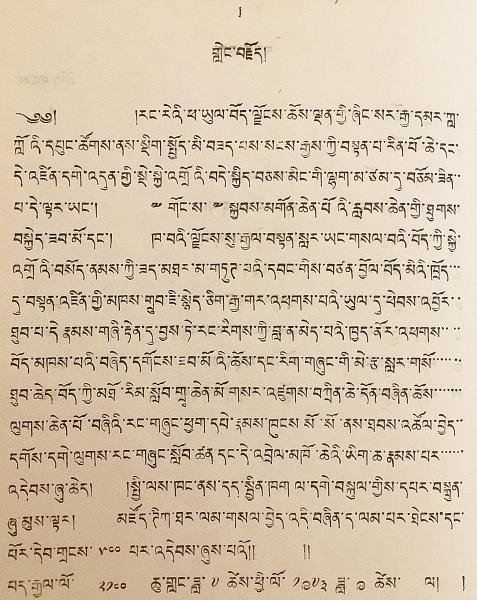 ༄༅། །རང་རེའི་ཕ་ཡུལ་བོད་ལྗོངས་ཆོས་ལྡན་གྱི་ཞིང་སར་རྒྱ་དམར་ཀླ་
ཀློ་འི་དཔུང་ཚོགས་ནས་སྡིག་སྤྱོད་མི་བཟད་པས་སངས་རྒྱས་ཀྱི་བསྟན་པ་རིན་པོ་ཆེ་དང་
དེ་འཛིན་དགེ་འདུན་གྱི་སྡེ་སྐྱེ་འགྲོ་འི་བདེ་སྐྱིད་བཅས་མིང་གི་ལྷག་མ་ཙམ་དུ་བཅོམ་ཟིན་
པ་དེ་ལྟར་ཡང་། ༧ གོང་ས་ ༧ སྐྱབས་མགོན་ཆེན་པོ་འི་རླབས་ཆེན་གྱི་ཐུགས་
བསྐྱེད་ཟབ་མོ་དང་། ཁ་བའི་ལྗོངས་སུ་རྒྱལ་བསྟན་སླར་ཡང་གསལ་བའི་བོད་ཀྱི་སྐྱེ་
འགྲོ་འི་བསོད་ནམས་ཀྱི་ཟད་མཐར་མ་གཏུཊ་པའི་དབང་གིས་བཙན་བྱོལ་བོད་མིའི་ཁྲོད་
དུ་བསྟན་འཛིན་གྱི་མཁས་གྲུབ་ཇི་སྙེད་ཅིག་རྒྱ་གར་འཕགས་པའི་ཡུལ་དུ་ཕེབས་འབྱོར་
ཐུབ་པ་དེ་རྣམས་གཞི་རྟེན་དུ་བྱས་ཏེ་རང་རིགས་ཀྱི་བླ་ན་མེད་པའི་ཁྱད་ནོར་འཕགས་
བོད་མཁས་པའི་བཞེད་དགོངས་ཟབ་མོ་འི་ཆོས་དང་རིག་གཞུང་གི་མེ་རྩ་སླར་གསོ་
ཐུབ་ཆེད་བོད་ཀྱི་མཐོ་རིམ་སློབ་གྲྭ་ཆེན་མོ་གསར་འཛུགས་བཀྲིན་ཆེ་དོན་བཞིན་ཆོས་
ལུགས་ཆེན་པོ་བཞིའི་རང་གཞུང་ཕྱག་དཔེ་རྣམས་ཁུངས་སོ་སོ་ནས་ཐབས་འཚོལ་བྱེད་
དགོས་དགེ་ལུགས་རང་གཞུང་སློབ་ཚན་དང་དེ་འབྲེལ་མཁོ་ཆེའི་ཡིག་ཆ་རྣམས་པར་
འདེབས་ཞུ་ཆེད། །སྤྱི་ལས་ཁང་ནས་དད་སྦྱིན་ཁག་ལ་དགེ་བསྐུལ་གྱིས་དཔར་བསྐྲུན་
ཞུ་མུས་ལྟར། མཛོད་ཊཱིཀ་ཐར་ལམ་གསལ་བྱེད་འདི་བཞིན་ད་ལམ་པར་ཐེངས་དང་
པོར་དེབ་གྲངས་ ༥༠༠ པར་འདེབས་ཞུས་པའོ།། །།
བད་རྒྱལ་ལོ་ ༢༡༠༠ ཆུ་གླང་ཟླ་ ༥ ཚེས་ཕྱི་ལོ་ ༡༩༧༣ ཟླ་ ༩ ཚེས་ ལ། །